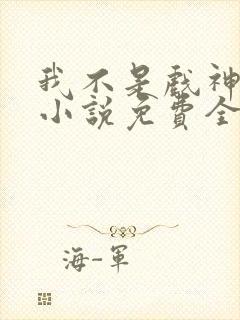 我不是戲神
小說免費全
海-軍